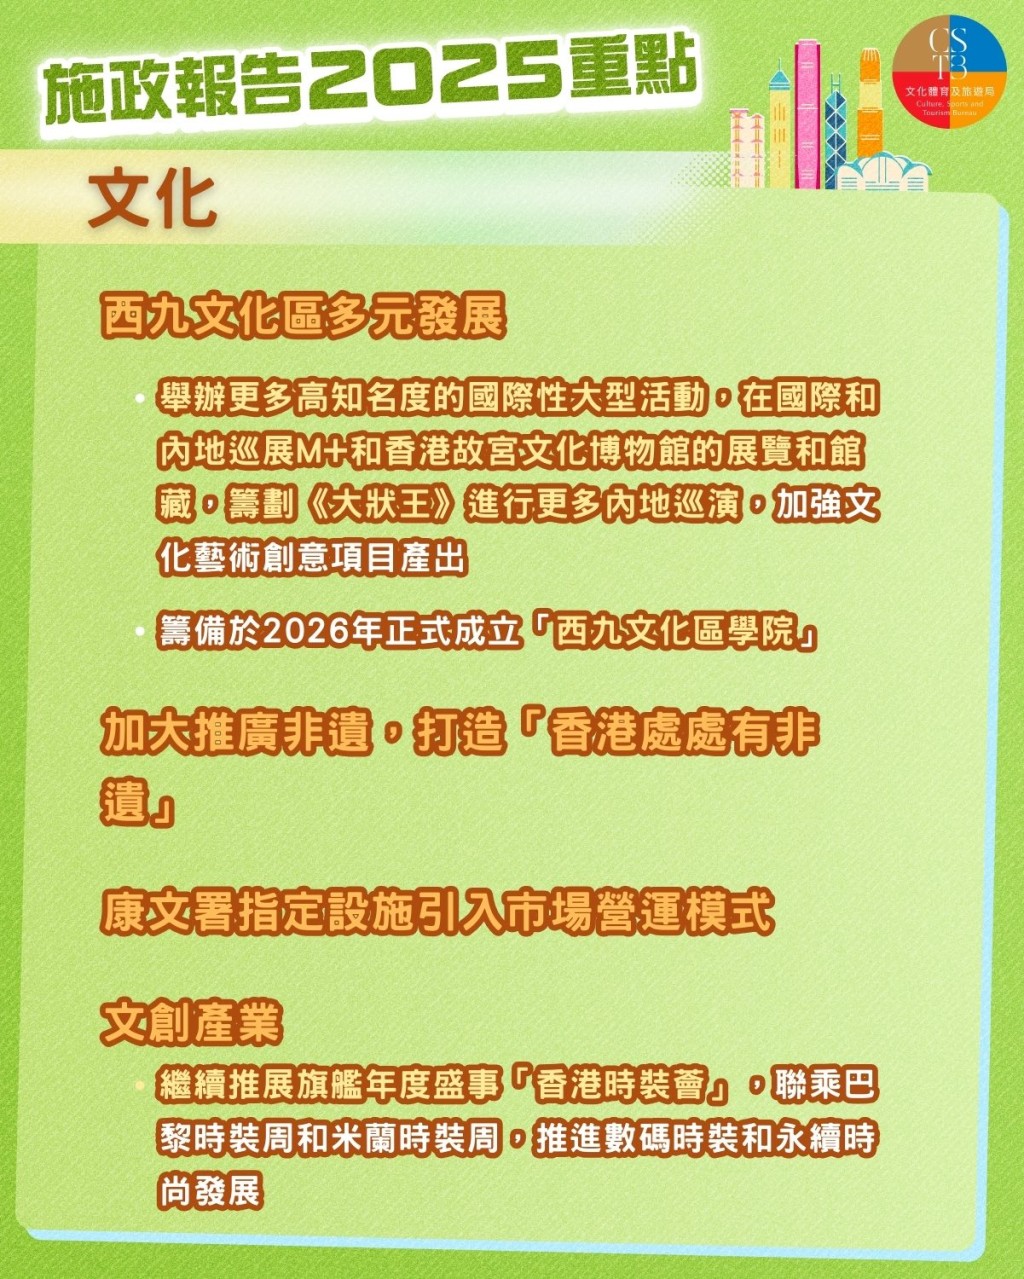 施政報告2025重點
CS
TB
文化體育及旅遊局
Culture, Sports and
Tourism Bureau
文化
西九文化區多元發展
• 舉辦更多高知名度的國際性大型活動，在國際和
內地巡展M+和香港故宮文化博物館的展覽和館
藏，籌劃《大狀王》進行更多內地巡演，加強文
化藝術創意項目產出
• 籌備於2026年正式成立「西九文化區學院」
加大推廣非遺，打造「香港處處有非
遺」
康文署指定設施引入市場營運模式
文創產業
• 繼續推展旗艦年度盛事「香港時裝薈」，聯乘巴
黎時裝周和米蘭時裝周，推進數碼時裝和永續時
尚發展